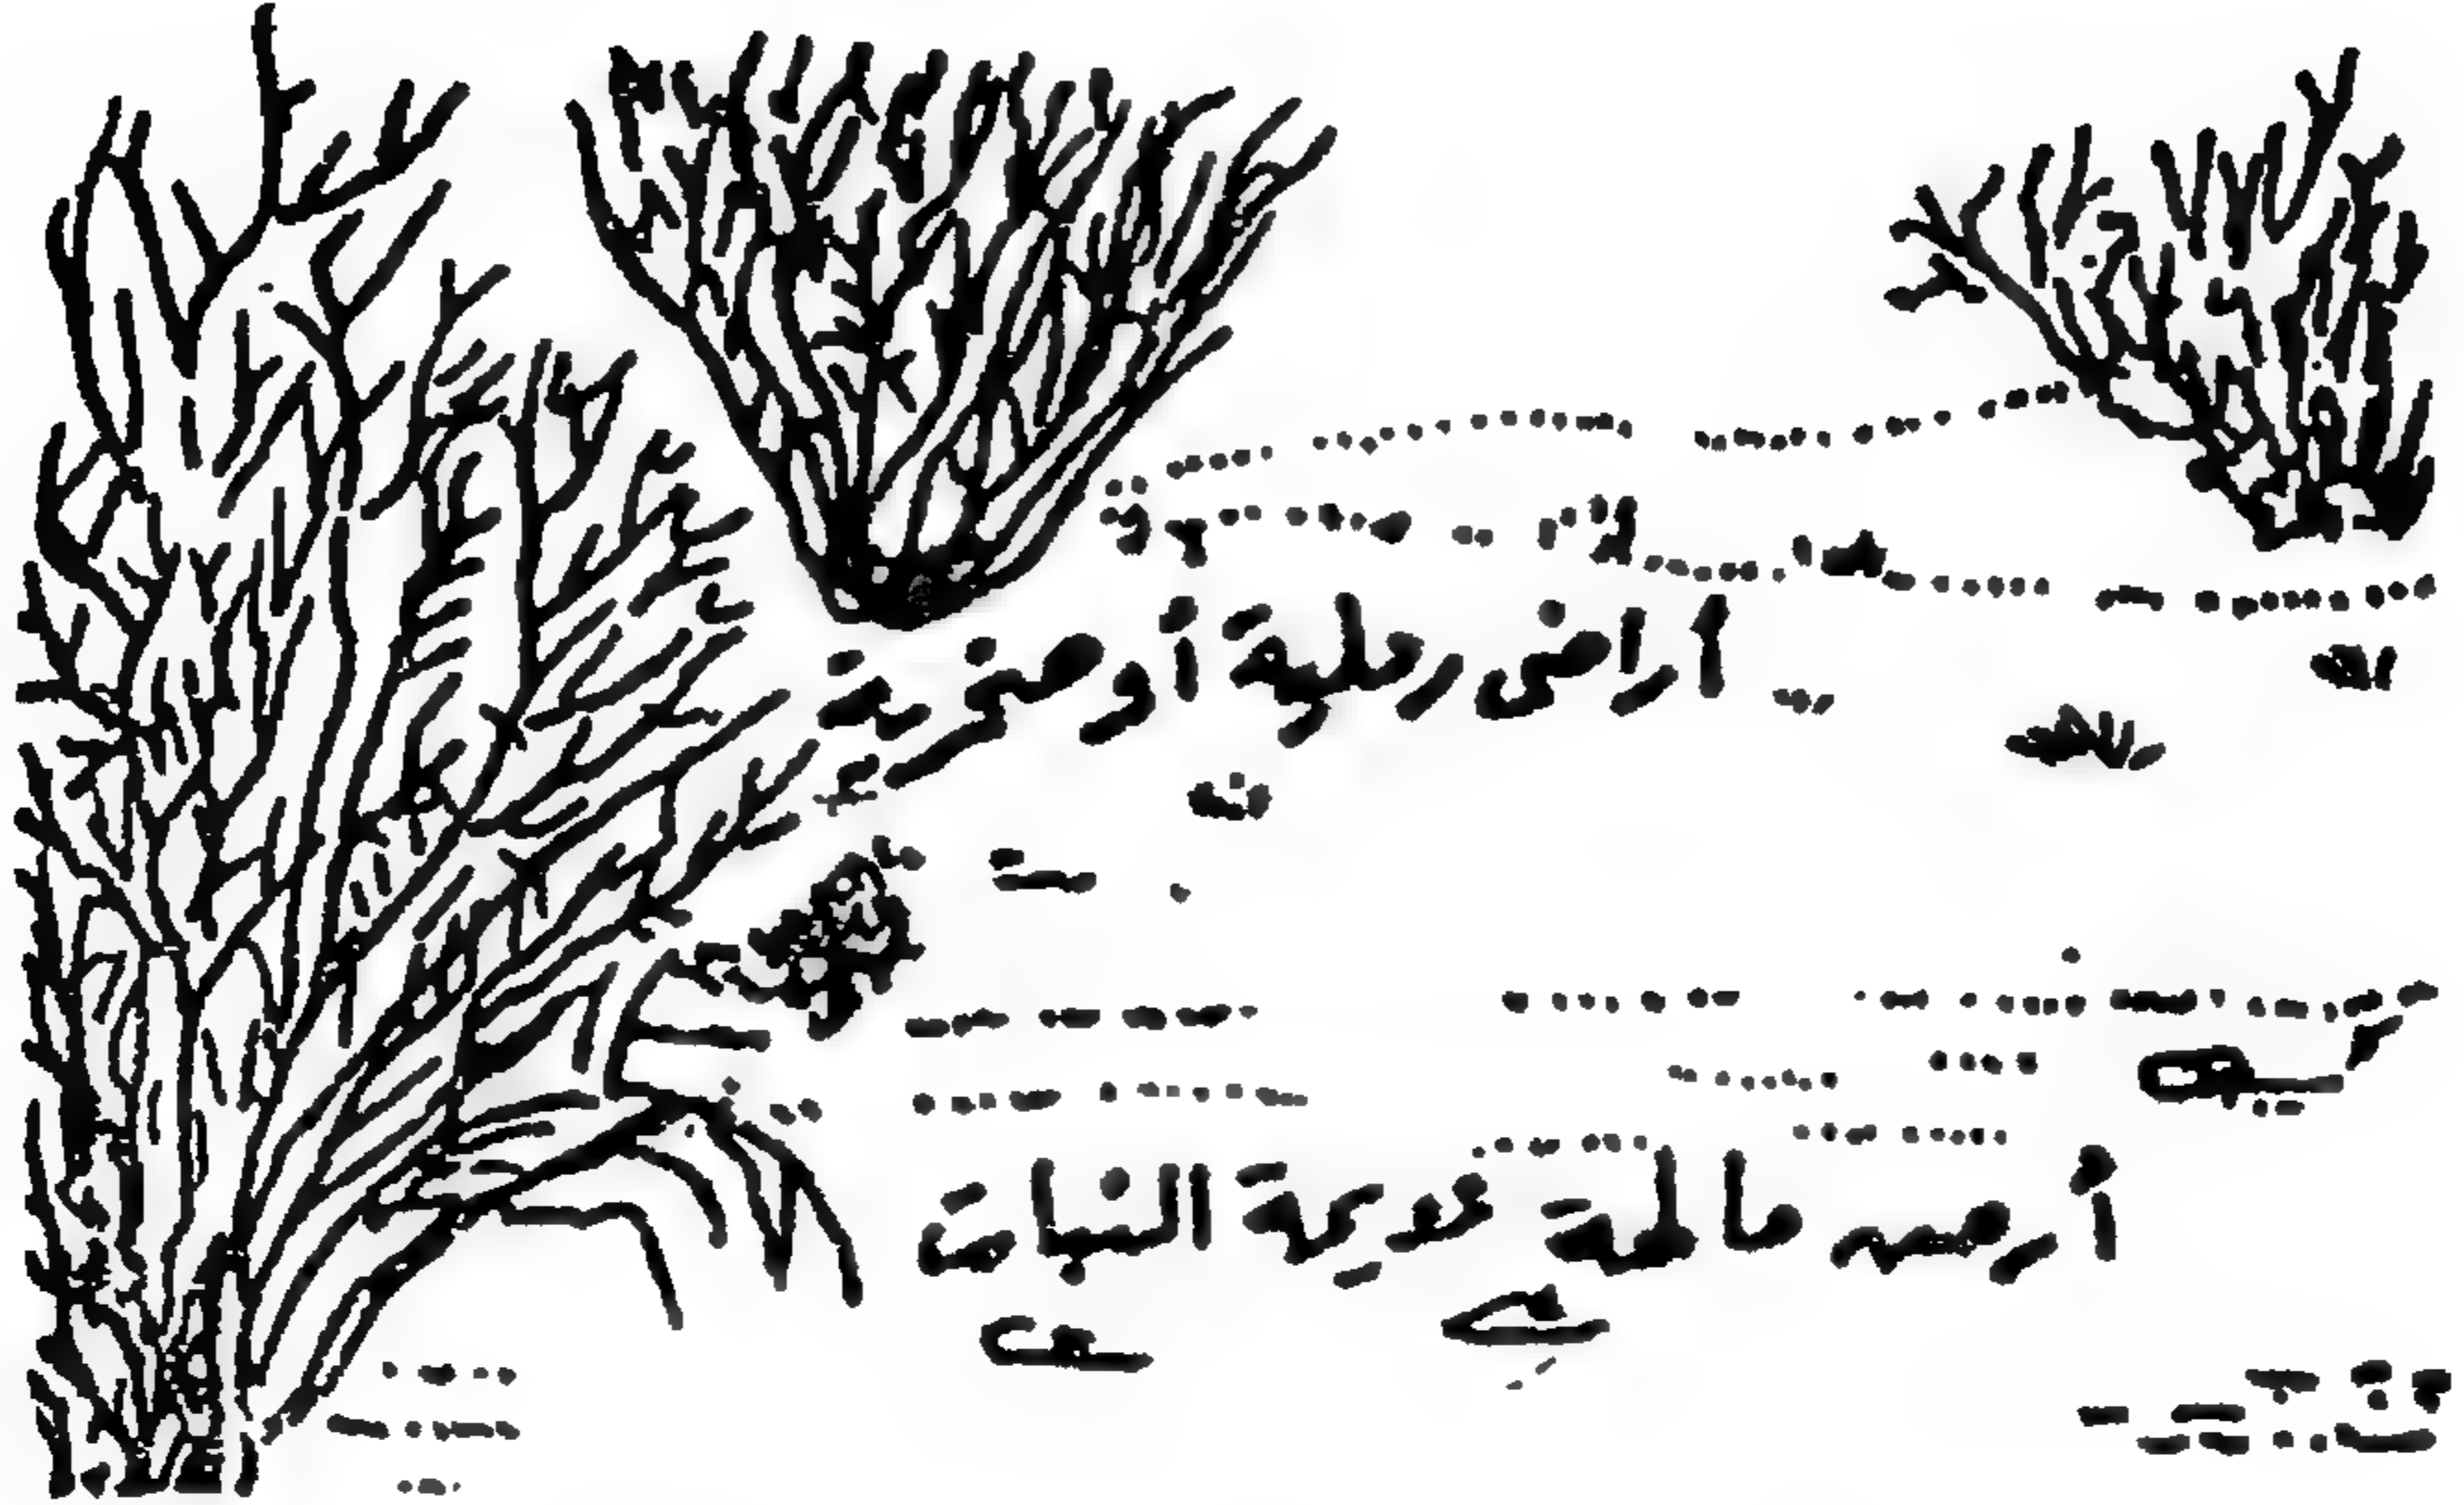 أراضى رملية أو صخرية
أرض مالحة عديمة النبات